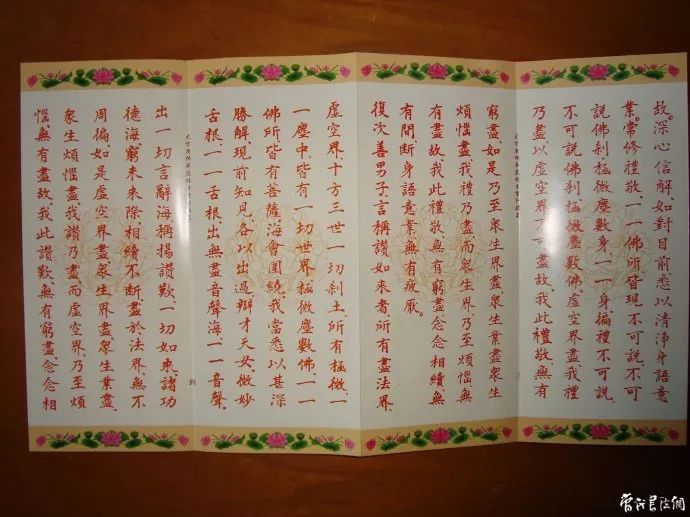 故。深心信解、如對目前、悉以清淨身語意
業。常修禮敬、一一佛所、皆現不可說、不可
說佛剎極微塵數身、一一身徧禮不可說
不可說佛剎極微塵數佛、虛空界盡、我禮
乃盡、以虛空界不可盡故、我此禮敬無有
大方廣佛華嚴經普賢行願品 三
窮盡、如是乃至衆生界盡、衆生業盡、衆生
煩惱盡、我禮乃盡、而衆生界、乃至煩惱無
有盡故、我此禮敬無有窮盡、念念相續、無
有間斷、身語意業、無有疲厭。
復次善男子、言稱讚如來者、所有盡法界
虛空界、十方三世一切剎土、所有極微、一
一塵中、皆有一切世界極微塵數佛、一一
佛所、皆有菩薩海會圍繞、我當悉以甚深
勝解、現前知見、各以出過辯才天女、微妙
舌根、一一舌根、出無盡音聲海、一一音聲、
大方廣佛華嚴經普賢行願品 四
出一切言辭海、稱揚讚歎、一切如來、諸功
德海、窮未來際、相續不斷、盡於法界、無不
周徧、如是虛空界盡、衆生界盡、衆生業盡、
衆生煩惱盡、我讚乃盡、而虛空界、乃至煩
惱、無有盡故、我此讚歎、無有窮盡、念念相